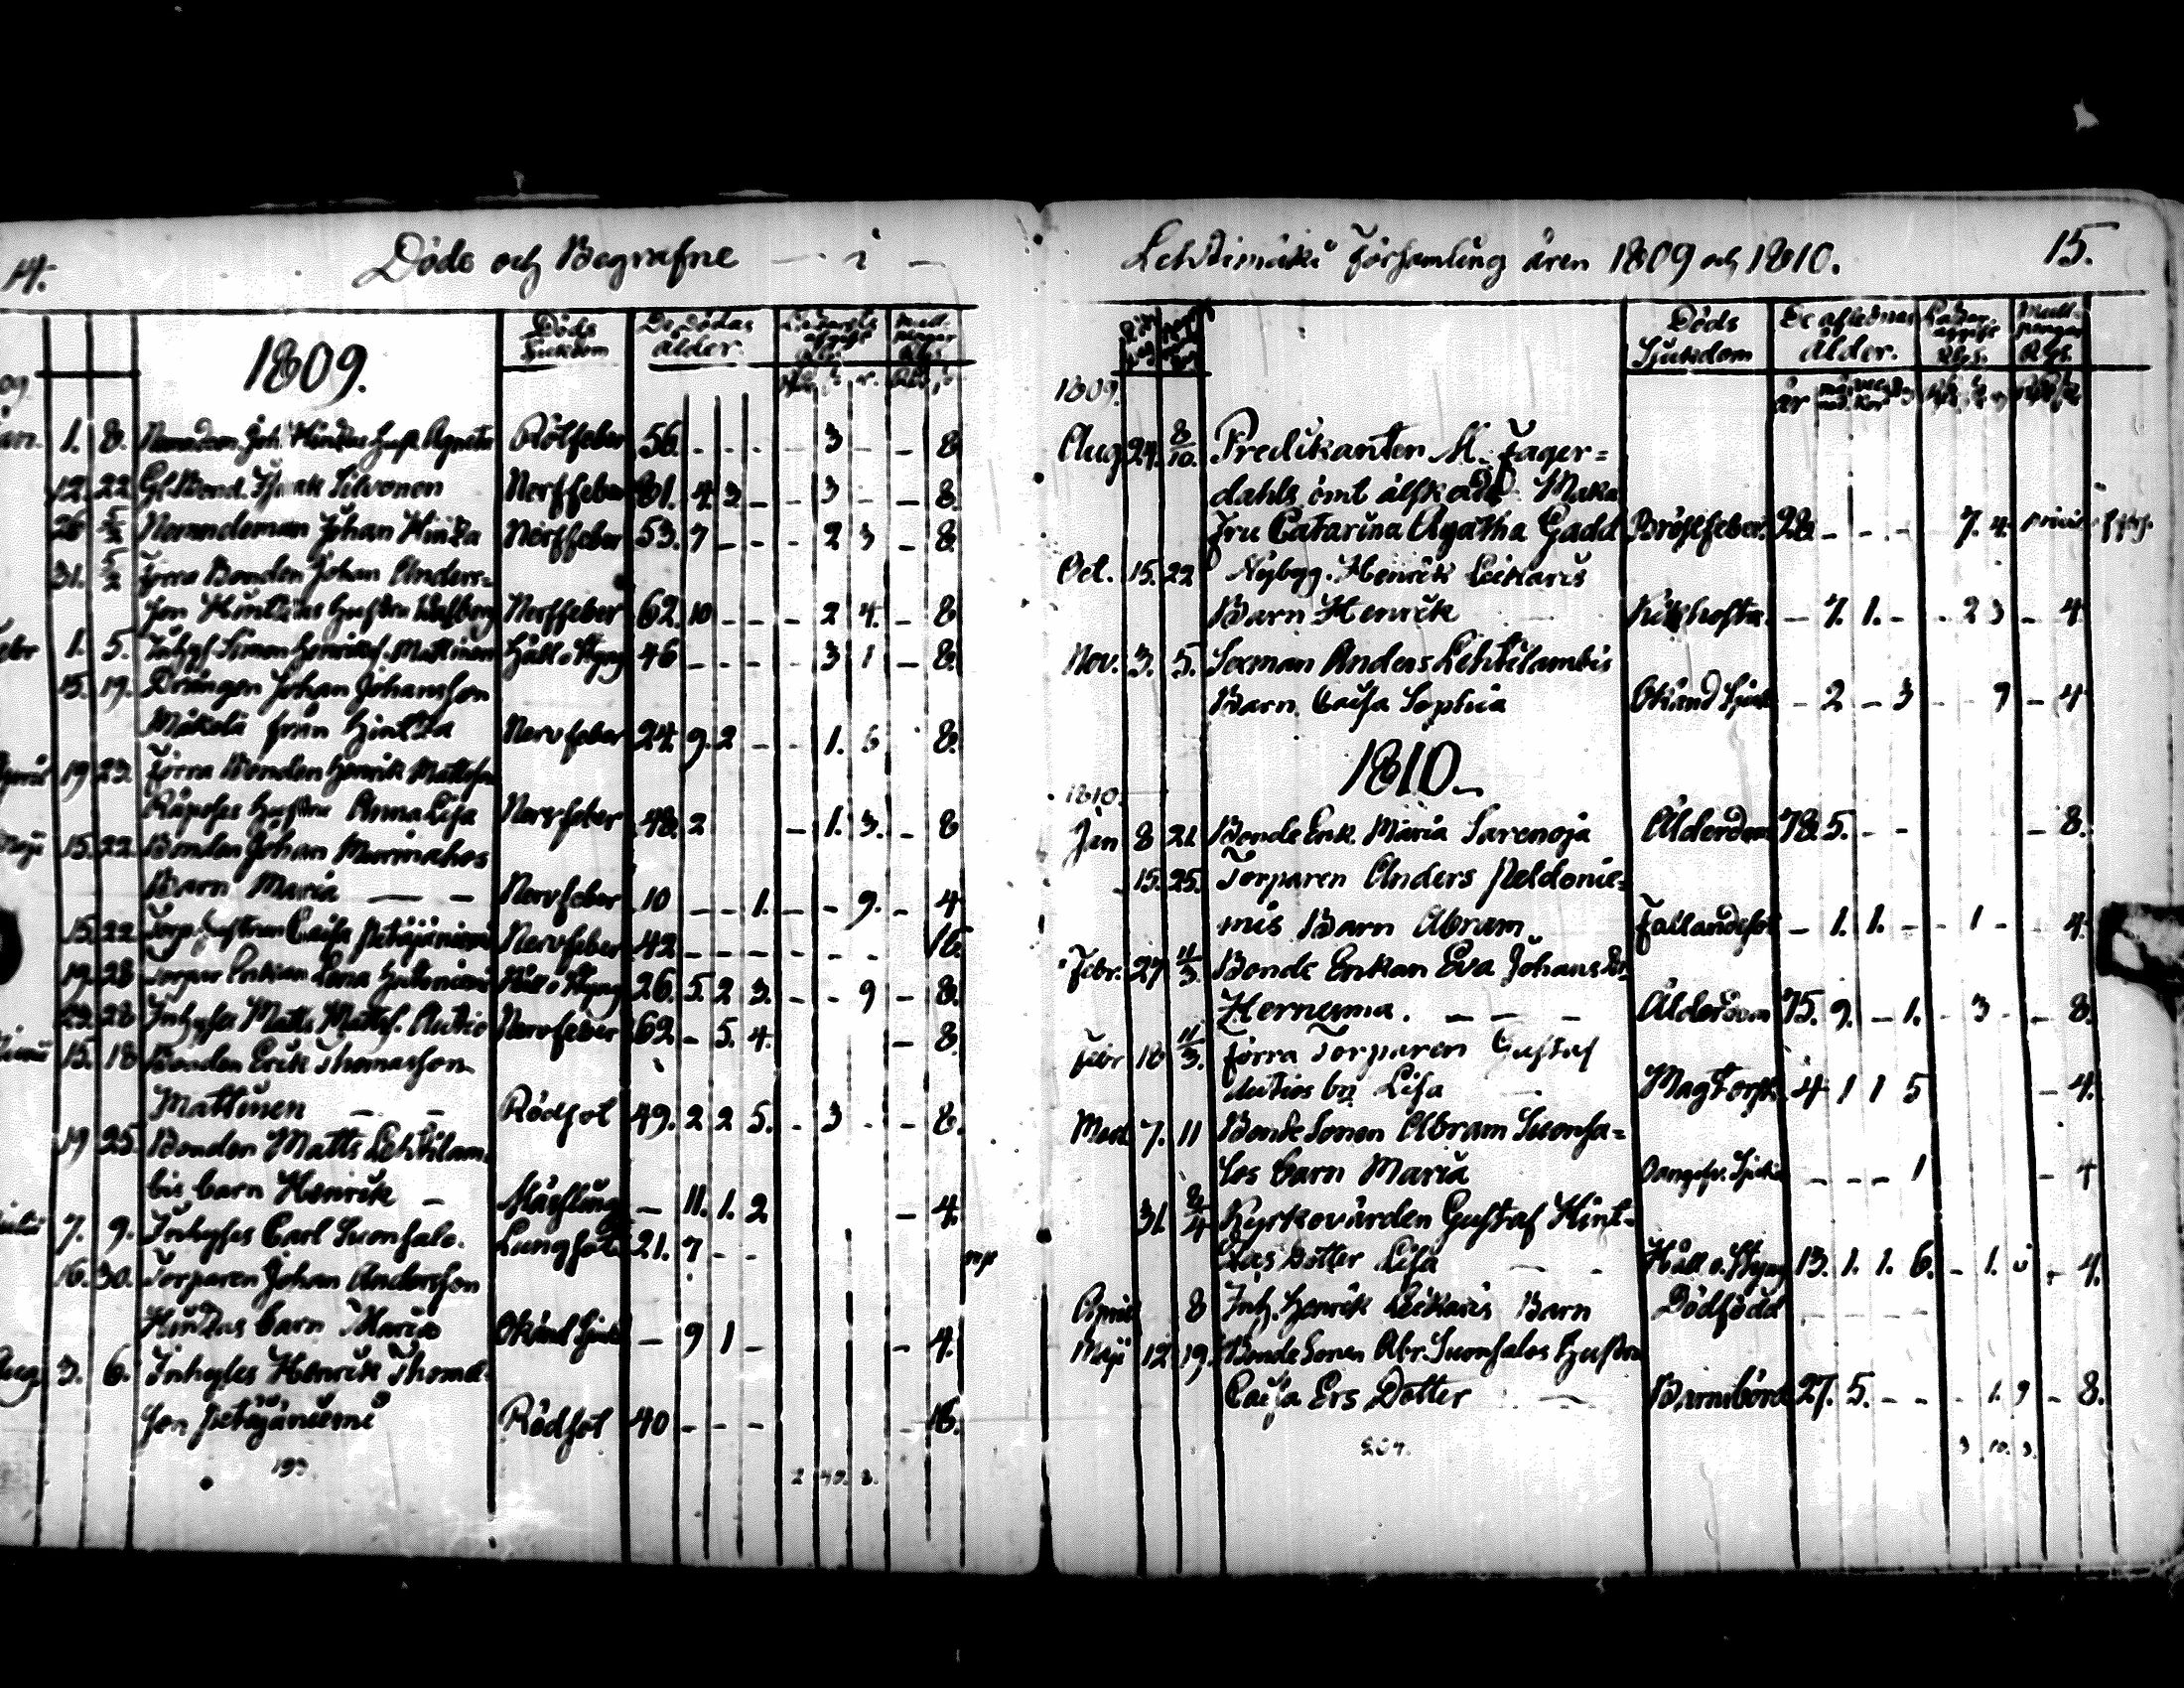 14.
Döde och Begrafne — i —
1809.
Döds Sjukdom
De Dödas ålder.
Jan. 1. 8. Nämndem. Joh. Hintzas Hust. Agneta Rötfeber 56. - - - - 3 - - 8.
12. 22 Gl. Bond. Isaak Silvonen Nerffeber 81. 4. 3 - - 3 - - 8.
26 5/2 Nämndeman Johan Hintza Nerffeber 53. 7 - - - 2 3 - 8.
31. 5/2 Förra Bonden Johan Anders=
son Hintzas Hustru Walborg Nerffeber 62. 10 - - - 2 4. - 8
Febr 1. 5. Inhys. Simon Henrikss. Mattinen Håll o Styng 46 - - - - 3 1 - 8.
15. 19. Drängen Johan Johansson
Mäkelä från Hintza Nervfeber 24. 9. 2 - - 1. 8.
April 19 23. Förra Bonden Henrik Mattsson
Räpeles Hustru Anna Lisa Nervfeber 48. 2 - 1. 3. - 8
Maji 15. 22 Bonden Johan
Barn Maria — — Nervfeber 10 - - 1. - - 9. - 4
15. 22 Torp. hustrun Caisa Petäjäniemi Nervfeber 42 - - - - - - 16.
19. 28 Torpar Enkian Lena Håll o Styng 26. 5. 2 3. - - 9 - 8.
23. 28 Inhyses Matts Matts. Autio Nervfeber 62 - 5. 4. - 8.
Junii 15. 18 Bonden Erik Thomasson
Mattinen — — Rödsot 49. 2 2 5. - 3 - - 8.
19 25. Bonden Matts Lehtilam=
bis barn Henrik — Mässling — 11. 1. 2 - 4.
Julii 7. 9. Inhyses Carl Suonsalo. Lungsot 21. 7 - -
16. 30. Torparen Johan Andersson
Hintzas barn Maria Okänd Sjukd — 9 1 - - 4.
Aug 3. 6. Inhyses Henrik Thoma=
son Petäjäniemi Rödsot 40 - - - - 16.
Lehtimäki Församling åren 1809 och 1810. 15.
Döds Sjukdom
De aflednas ålder.
1809.
Aug 24. 8/10. Predikanten M. Fager=
dahls ömt älskade Maka
Fru Catarina Agatha Gadd Bröstfeber 28 - - - 7. 4.
Oct. 15. 22 Nybygg. Henrik Leikaris
Barn Henrik Kikhosta. — 7. 1. - - 2 3 - 4
Nov. 3. 5. Sexman Anders Lehtilambis
Barn Caisa Sophia Okänd Sjukd - 2 - 3 - - 9 - 4
1810.
1810.
Jan 8 21 Bonde Enk. Maria Sarenoja Ålderdom 78. 5. - - - 8.
15. 25. Torparen Anders Peldonie=
mis Barn Abram. Fallandesot — 1. 1. - - 1 - - 4.
Febr. 27 4/3. Bonde Enkan Eva Johans Dr
Hernesma. — — — Ålderdom 75. 9. - 1. - 3 - - 8.
Febr 18 4/3. Förra Torparen Gustaf
Autios bn Lisa Magtorsk. 4 1 1 5 - 4.
Mart 7. 11 Bonde Sonen Abram Suonsa=
los barn Maria Oangifv. Sjukd - - - 1 - 4
31. 8/4 Kyrkovärden Gustaf Hint=
zas Dotter Lisa — — Håll o. Styng 13. 1. 1. 6. - 1. - 4.
April 8 Inh. Henrik Leikaris Barn Dödfödd - - - -
Maji 12 19. Bonde Sonen Abr. Suonsalos Hustru
Caisa Ers Dotter — Barnsbörd 27. 5. - - - 1. 9 - 8.